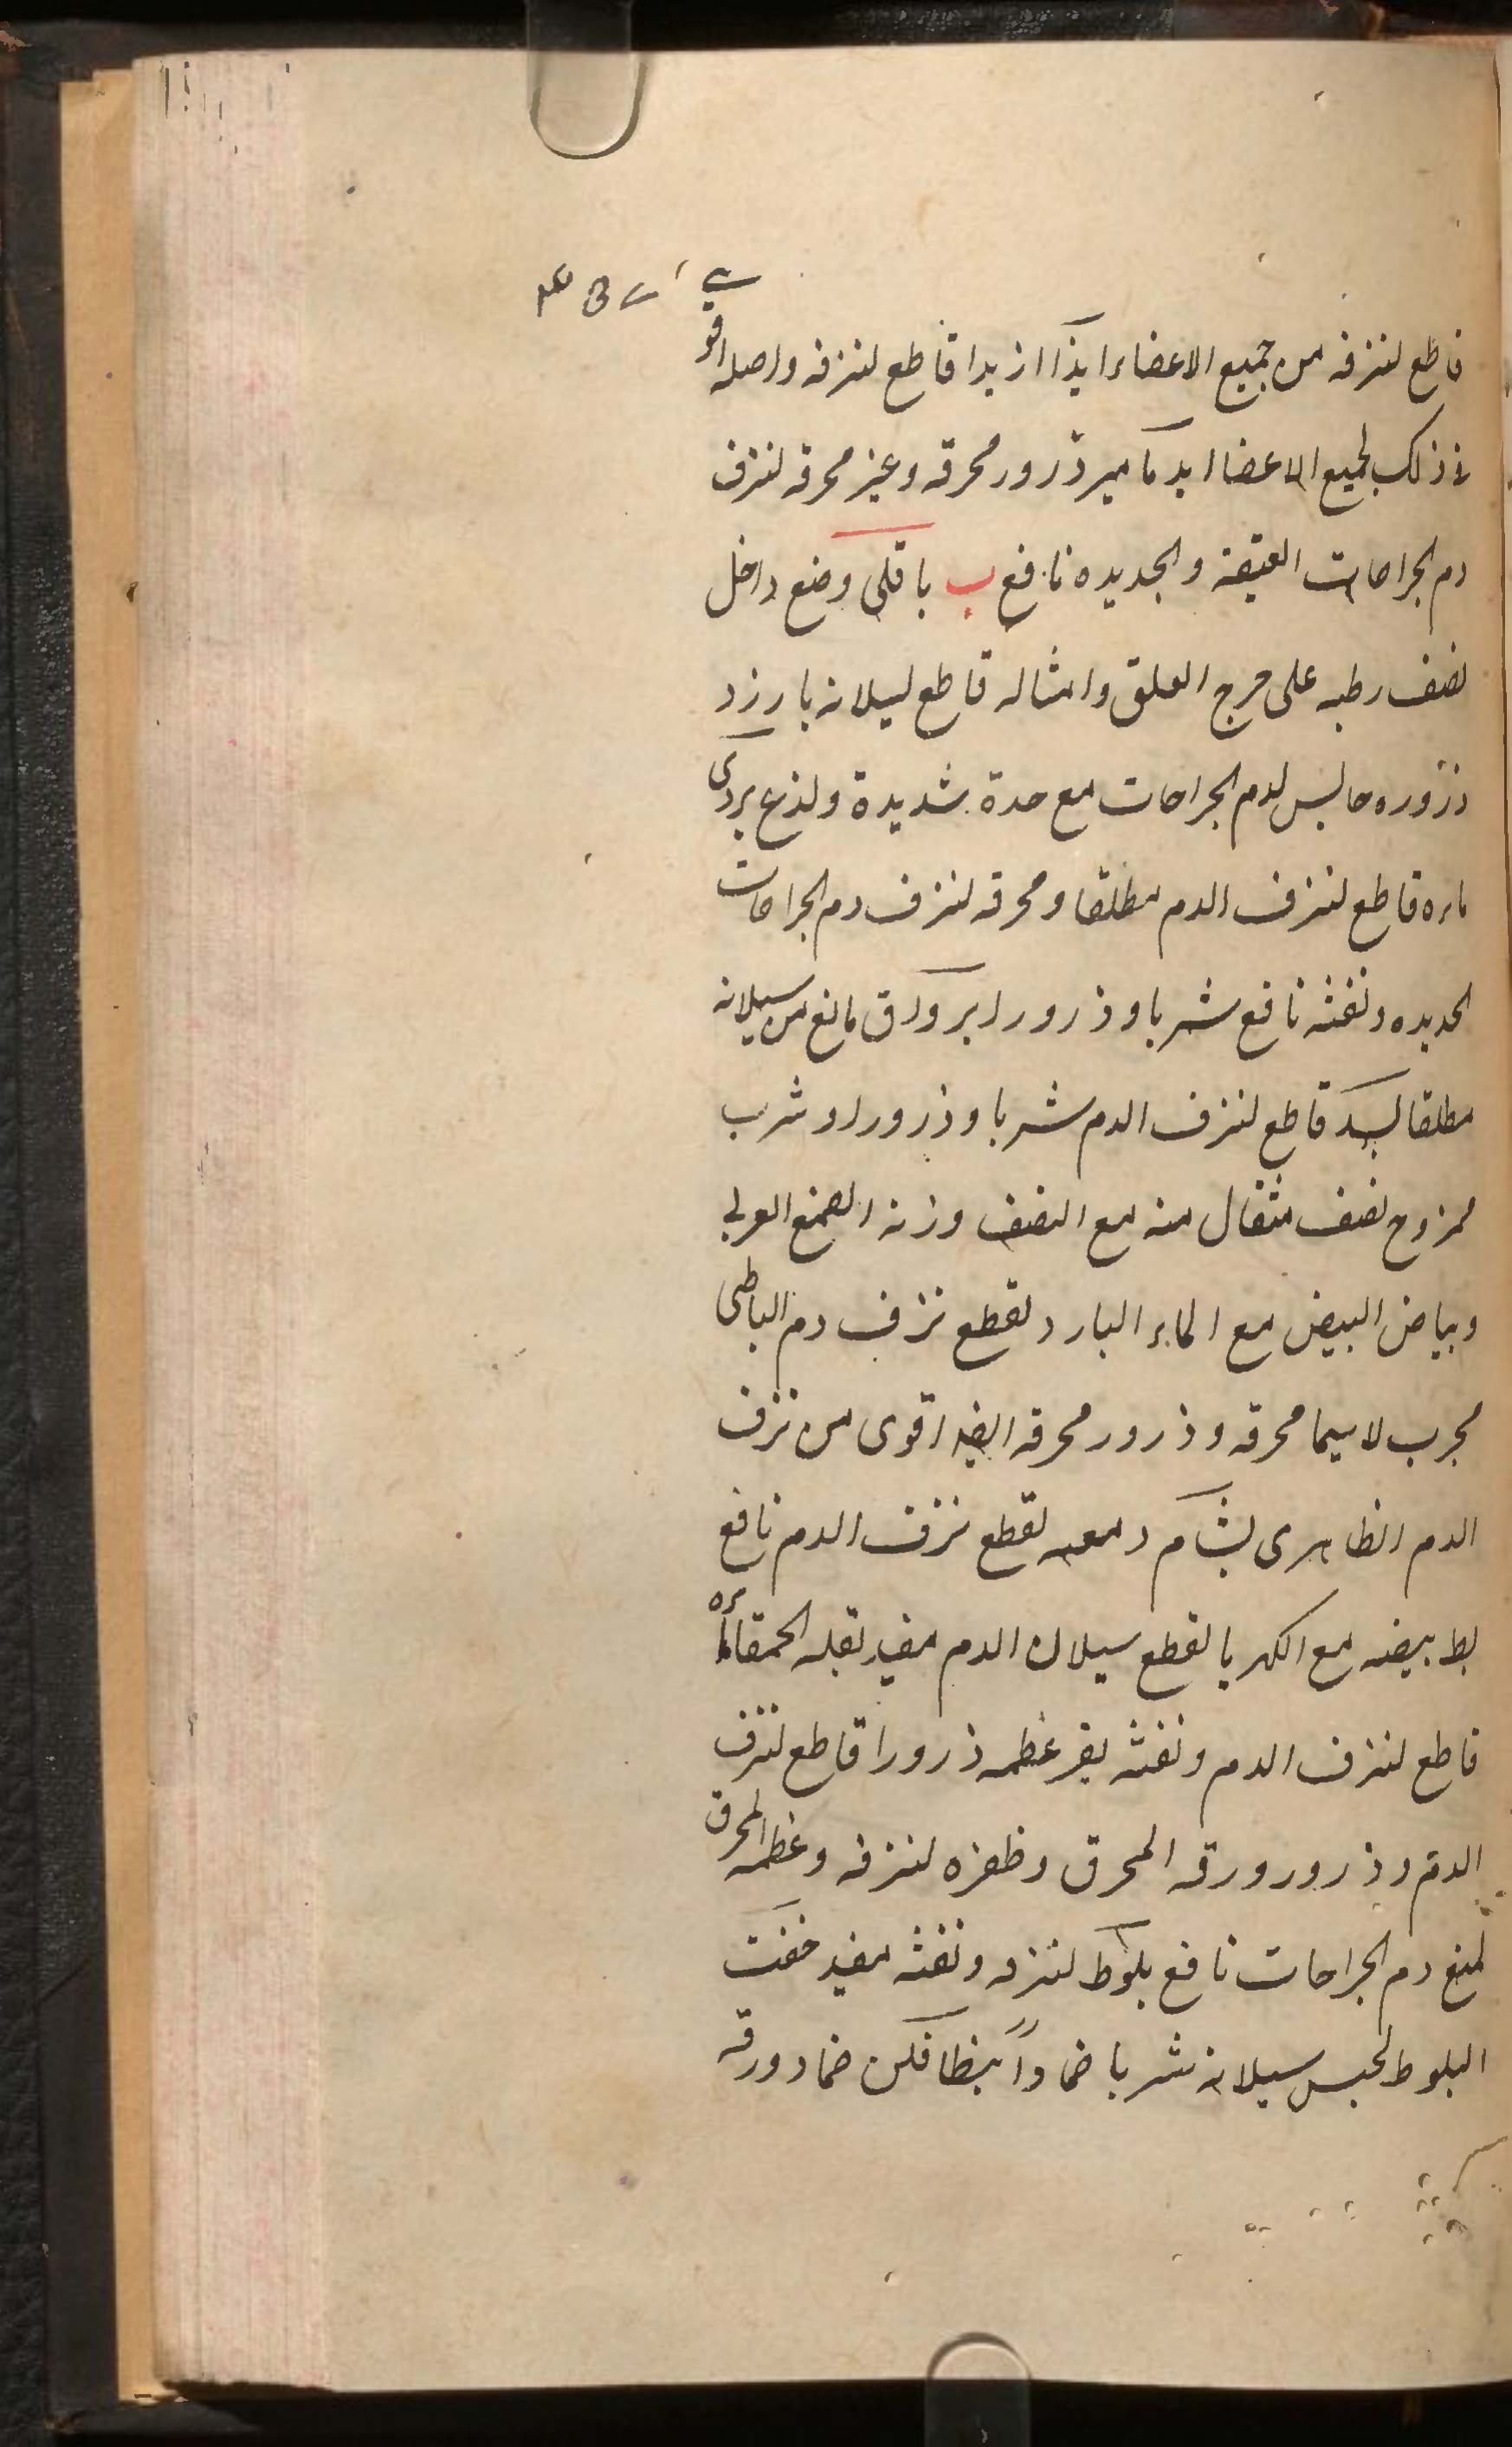 قاطع لنزفه من جميع الاعضاء ايذا ازبدا قاطع لنزفه واصله اقو
فى ذلك لجميع الاعضا ايدماميد ذرور محرقه وغير محرقه لنزف
دم الجراحات العتيقة والجديده نافع ب باقلى وضع داخل
نصف رطبه على جرح العلق وامثاله قاطع لسيلانه بارزد
ذروره حابس لدم الجراحات مع حدة شديدة ولذع بردى
ماءه قاطع لنزف الدم مطلقا ومحرقه لنزف دم الجراحات
الجديده ونفثه نافع شربا وذرورا برواق مانع من سيلانه
مطلقا بسد قاطع لنزف الدم شربا وذرورا وشرب
ممزوج نصف مثقال منه مع النصف وزنه الصمغ العربى
وبياض البيض مع الماء البارد لقطع نزف دم الباطنى
مجرب لاسيما محرقه وذرور محرقه ايضا اقوى من نزف
الدم الظاهرى بشام دمعه لقطع نزف الدم نافع
بط بيضه مع الكهربا لقطع سيلان الدم مفيد بقلة الحمقاء ماءه
قاطع لنزف الدم ونفثه بقر عظمه ذرورا قاطع لنزف
الدم وذرور ورقه المحرق وظفره لنزفه وعظمه المحرق
لمنع دم الجراحات نافع بلوط لنزفه ونفثه مفيد خفت
البلوط لحبس سيلانه شربا ضمادا بنطافلن ضماد ورقه